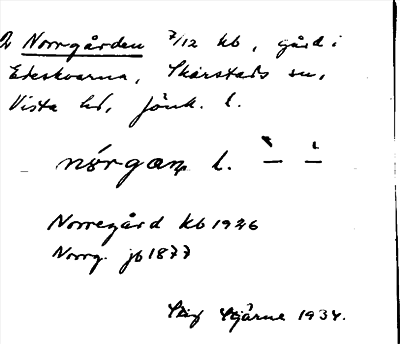 2 Norrgården 7/12 kb, gård i
Edeskvarna, Skärstads sn,
Vista hd, Jönk. l.
nǿrgaɳ l.
Norregård kb 1926
Norrg. jb 1877
Stig Stjärne 1934.